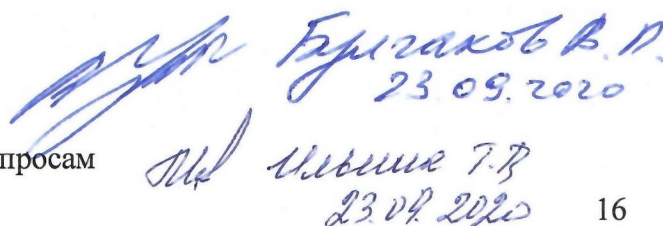 Булгаков В.П.
23.09.2020
просам Ильина Т.В
23.09.2020 16